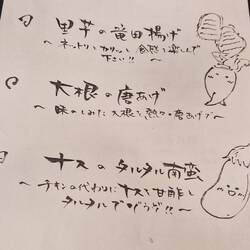 里芋の竜田揚げ
〜ネットリ、カリッと食感を楽しんで
下さい!!〜
大根の唐あげ
〜味のしみた大根を熱々唐あげで〜
ナスのタルタル南蛮
〜チキンの代わりにナスを甘酢と
タルタルでどうぞ!!〜